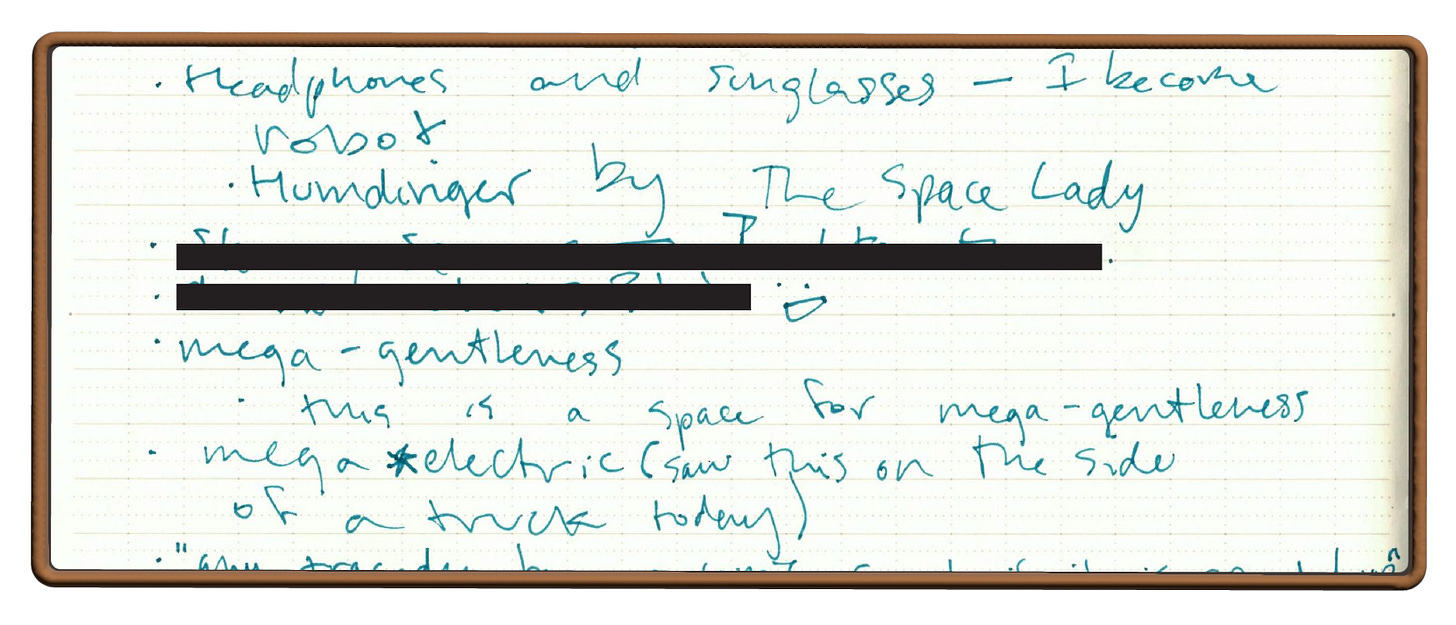 · Headphones and sunglasses — I become
robot
· Humdinger by The Space Lady
· mega-gentleness
· this is a space for mega-gentleness
· mega *electric (saw this on the side
of a truck today)
· "any